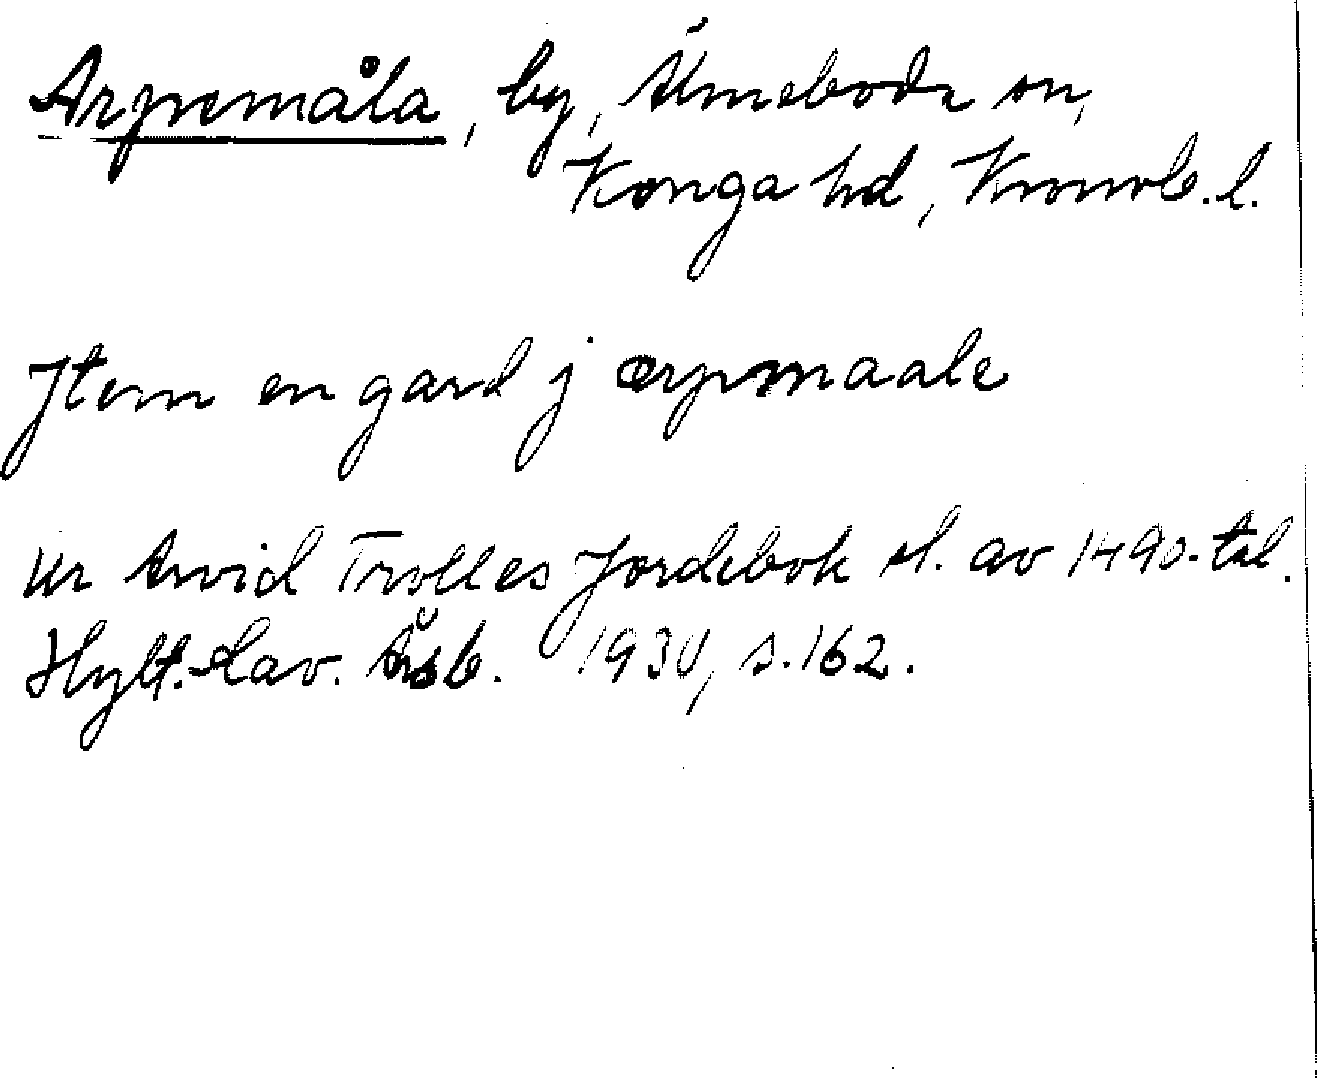 Arpemåla, by, Älmeboda sn,
Konga hd, Kronob. l.
Jtem en gard j ærpmaale
Ur Arvid Trolles Jordebok sl. av 1490-tal.
Hylt.-Cav. Årsb. 1930, s. 162.